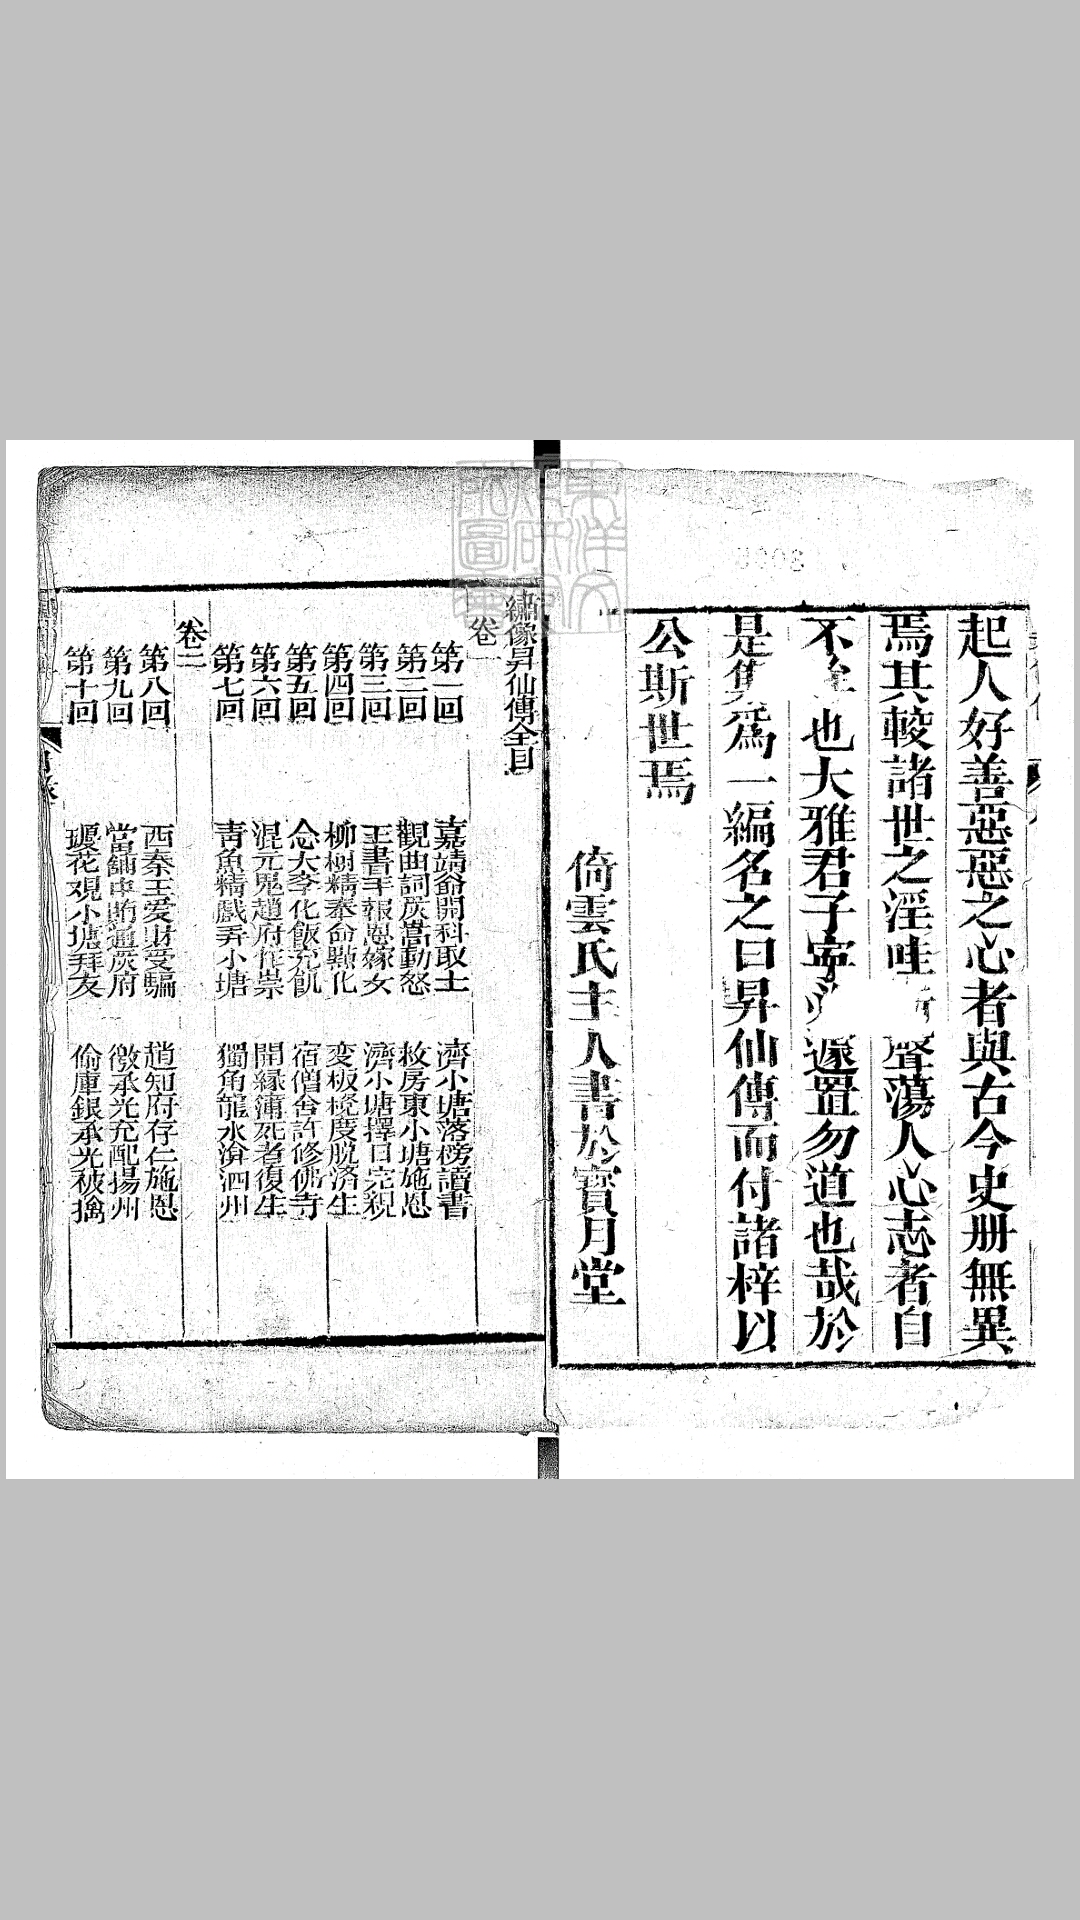 起人好善惡惡之心者與古今史册無異
焉其較諸世之淫哇聲蕩人心志者自
不 也大雅君子寧 遽置勿道也哉於
是集爲一編名之曰昇仙傳而付諸梓以
公斯世焉
倚雲氏主人書於寶月堂
繡像昇仙傳全目
卷一
第一回 嘉靖爺開科取士 濟小塘落榜讀書
第二回 觀曲詞嚴嵩動怒 救房東小塘施恩
第三回 王書手報恩嫁女 濟小塘擇日完親
第四回 柳樹精奉命點化 变板櫈度脱濟生
第五回 念大李化飯充飢 宿僧舍許修佛寺
第六回 混元鬼趙府作祟 開緣簿死者復生
第七回 靑魚精戲弄小塘 獨角龍水渰泗州
卷二
第八回 西秦王爱財受騙 趙知府存仁施恩
第九回 當舖中賄通嚴府 徵承光充配揚州
第十回 瓊花观小塘拜友 偷庫銀承光被擒
目錄